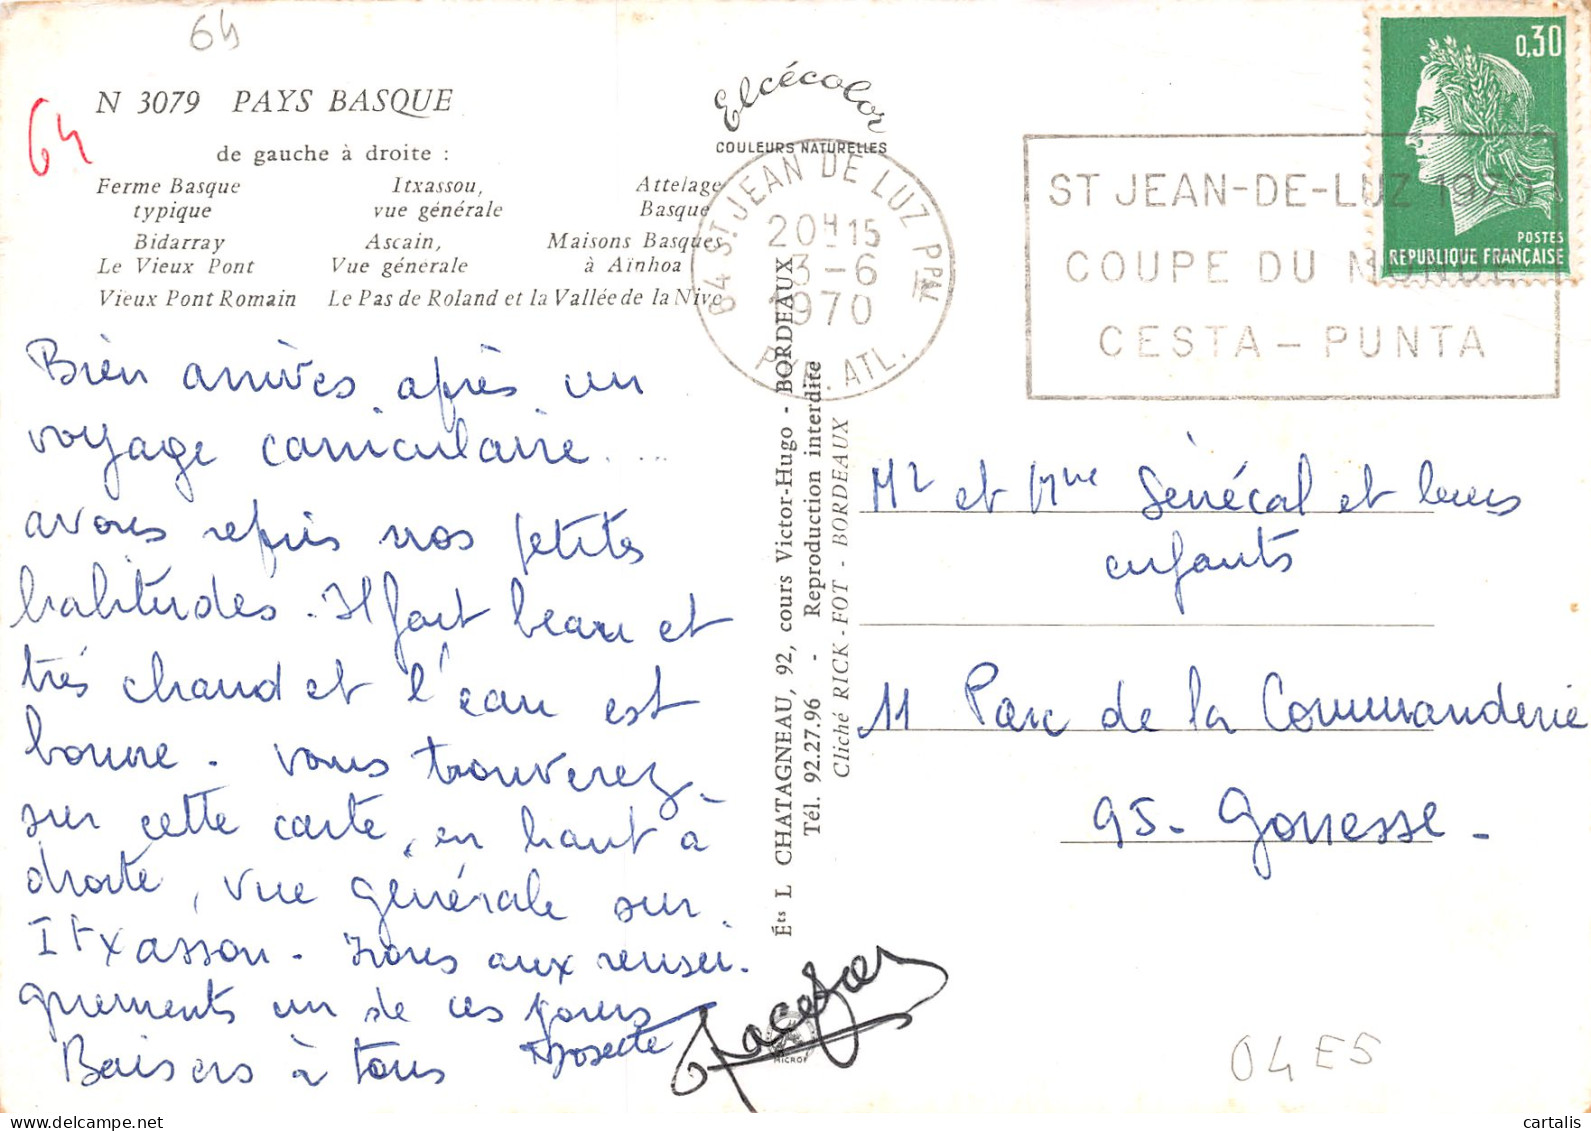 64
64
N 3079 PAYS BASQUE
de gauche à droite :
Ferme Basque typique
Itxassou, vue générale
Attelage Basque
Bidarray Le Vieux Pont
Ascain, Vue générale
Maisons Basques à Aïnhoa
Vieux Pont Romain Le Pas de Roland et la Vallée de la Nive
Elcécolor
COULEURS NATURELLES
64 ST JEAN DE LUZ PPAL
20H15
3-6
1970
PYR. ATL.
ST JEAN-DE-LUZ 1970
COUPE DU MONDE
CESTA - PUNTA
0,30
POSTES
REPUBLIQUE FRANÇAISE
Bien arrivés après un
voyage caniculaire ...
avons repris nos petites
habitudes. Il fait beau et
très chaud et l'eau est
bonne. Vous trouverez
sur cette carte, en haut à
droite, vue générale sur
Itxassou. Irons aux rensei-
gnements un de ces jours
Baisers à tous
Ets L CHATAGNEAU, 92, cours Victor-Hugo - BORDEAUX
Tél. 92.27.96 - Reproduction interdite
Cliché RICK-FOT - BORDEAUX
MICRO
Mr et Mme Sénécal et leurs
enfants
11 Parc de la Commanderie
95 - Gonesse -
04E5
delcampe.net
cartalis